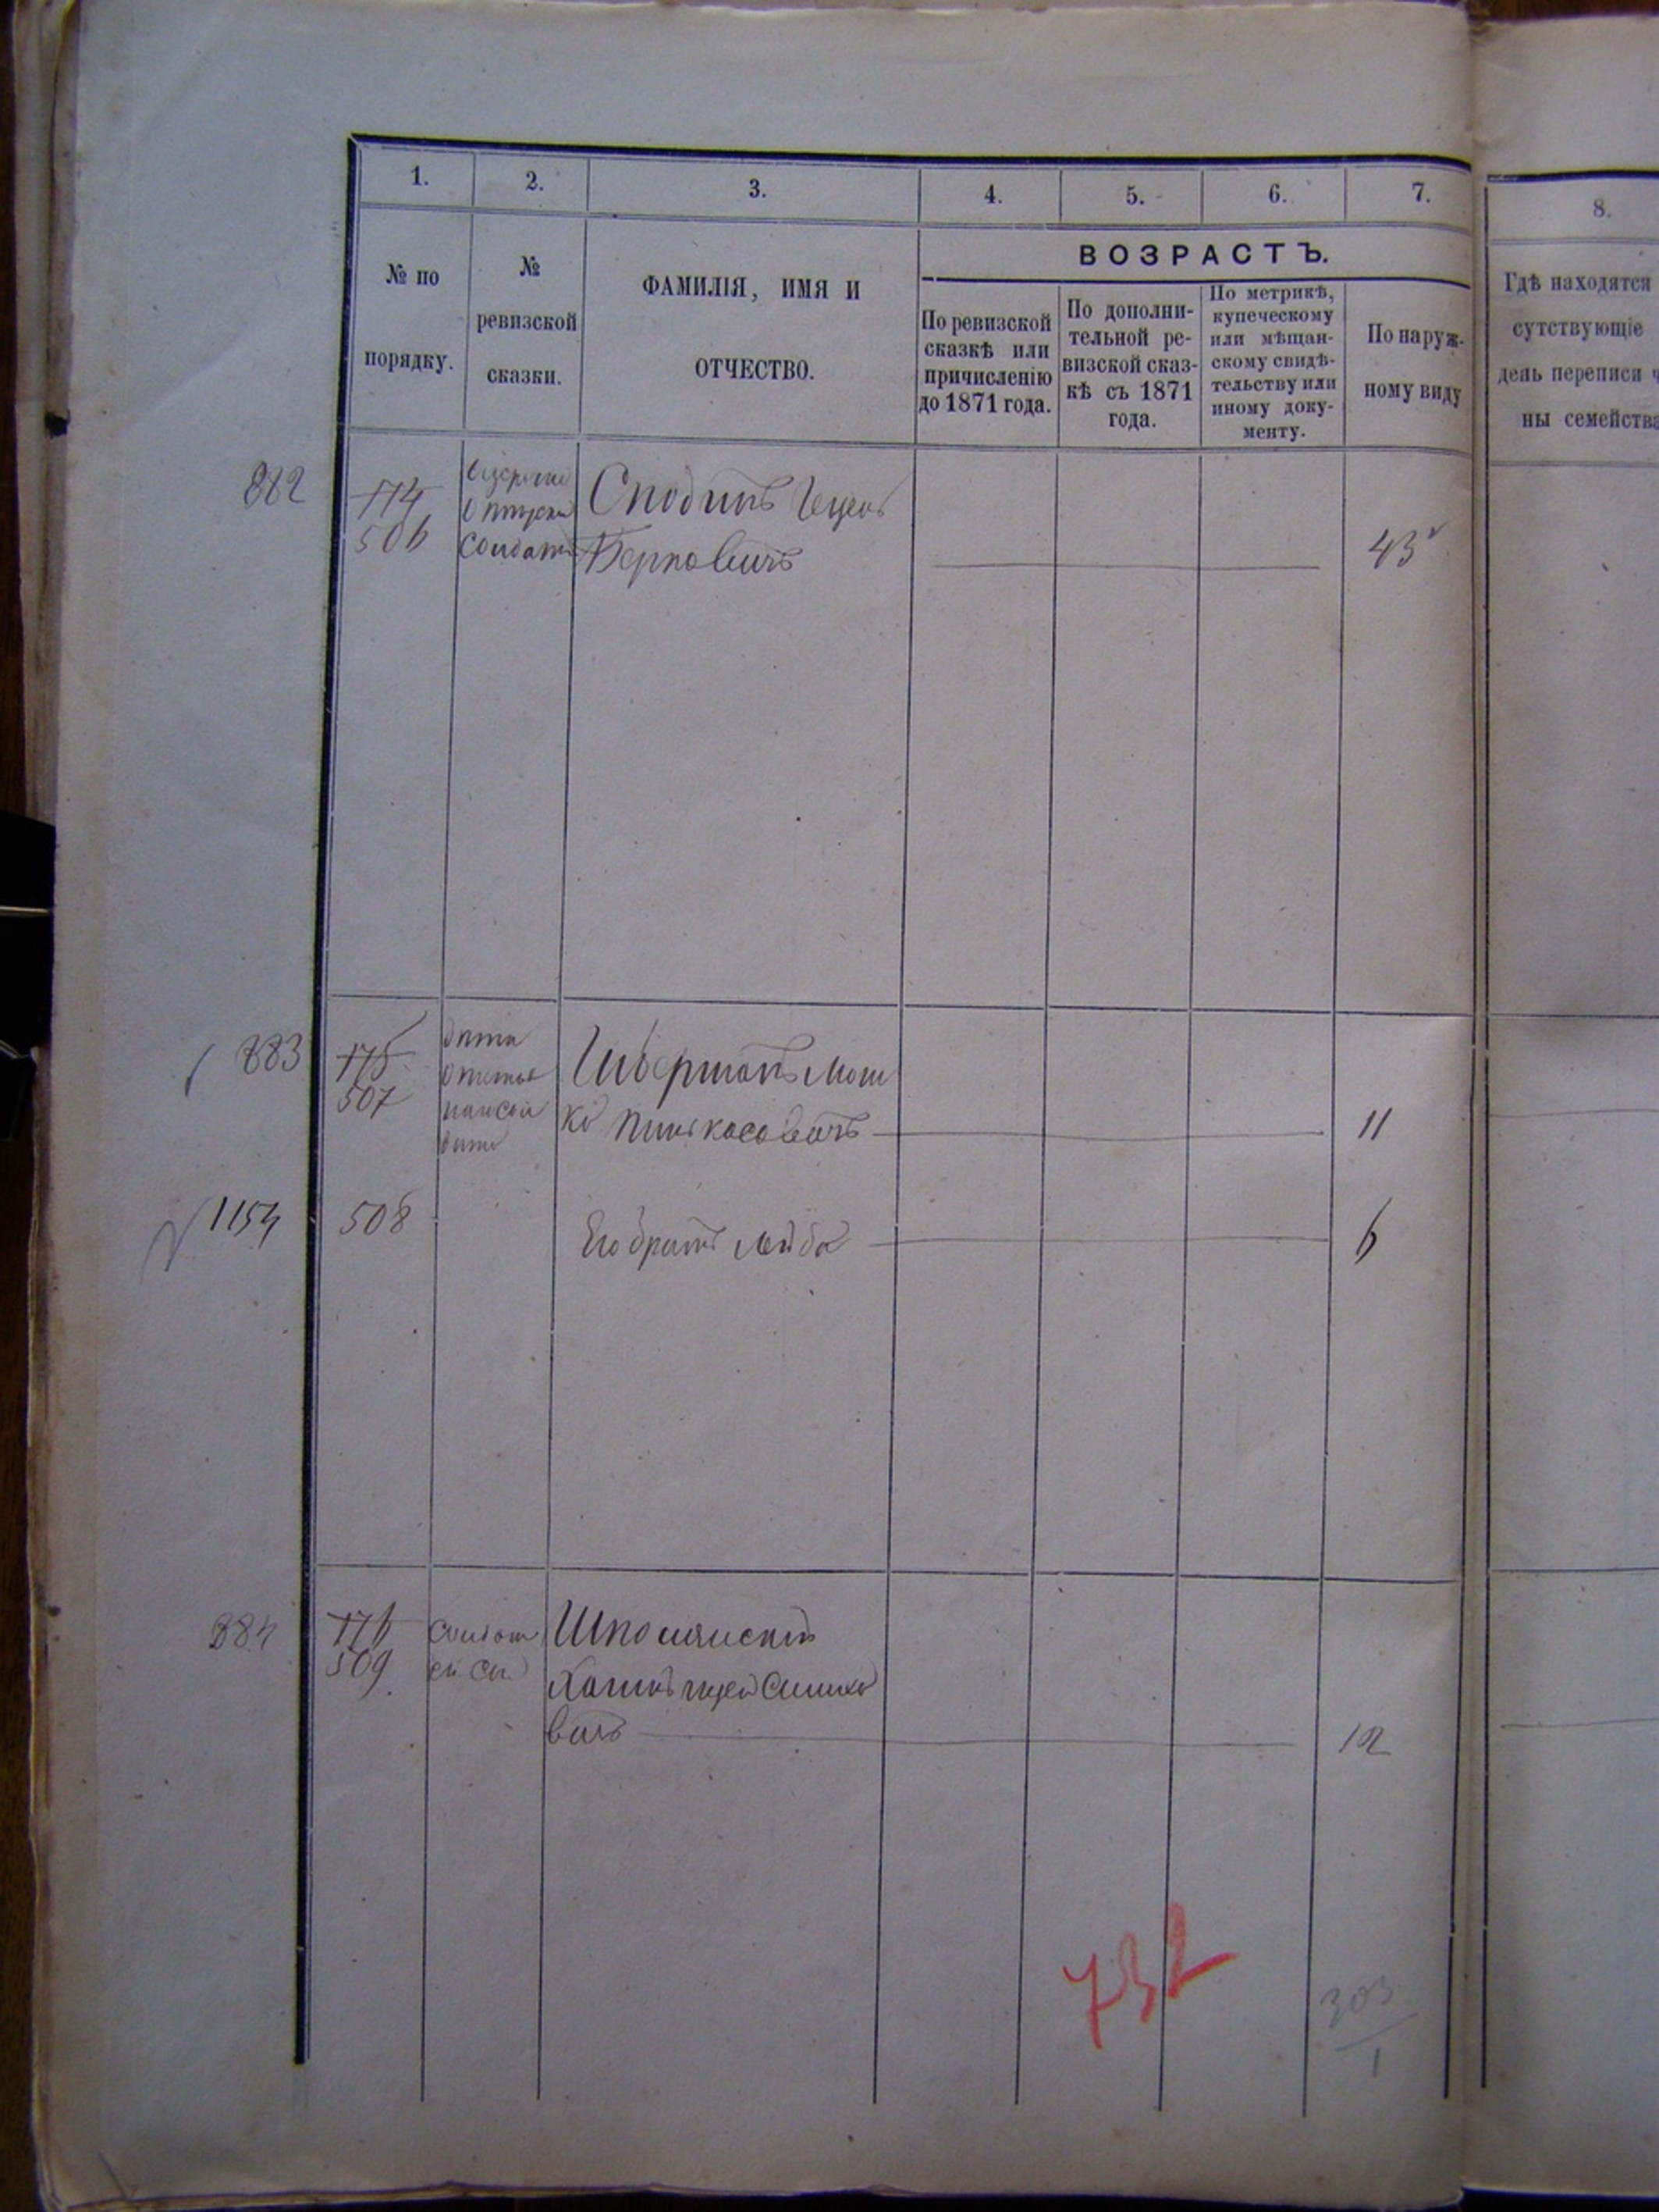 1.
2.
3.
4.
5.
6.
7.
8.
№ по
порядку.
№
ревизской
сказки.
ФАМИЛІЯ, ИМЯ И
ОТЧЕСТВО.
ВОЗРАСТЪ.
По ревизской
сказкѣ или
причисленію
до 1871 года.
По дополни-
тельной ре-
визской сказ-
кѣ съ 1871
года.
По метрикѣ,
купеческому
или мѣщан-
скому свидѣ-
тельству или
иному доку-
менту.
По наруж-
ному виду
Гдѣ находятся
сутствующіе
день переписи ч
ны семейства
882
174
506
Сподинъ
Берковичъ
43
883
175
507
Мош
ко Пинхасовичъ
11
1154
508
Его братъ Лейба
6
884
176
509
Шполянскій
вичъ
12
732
303
1